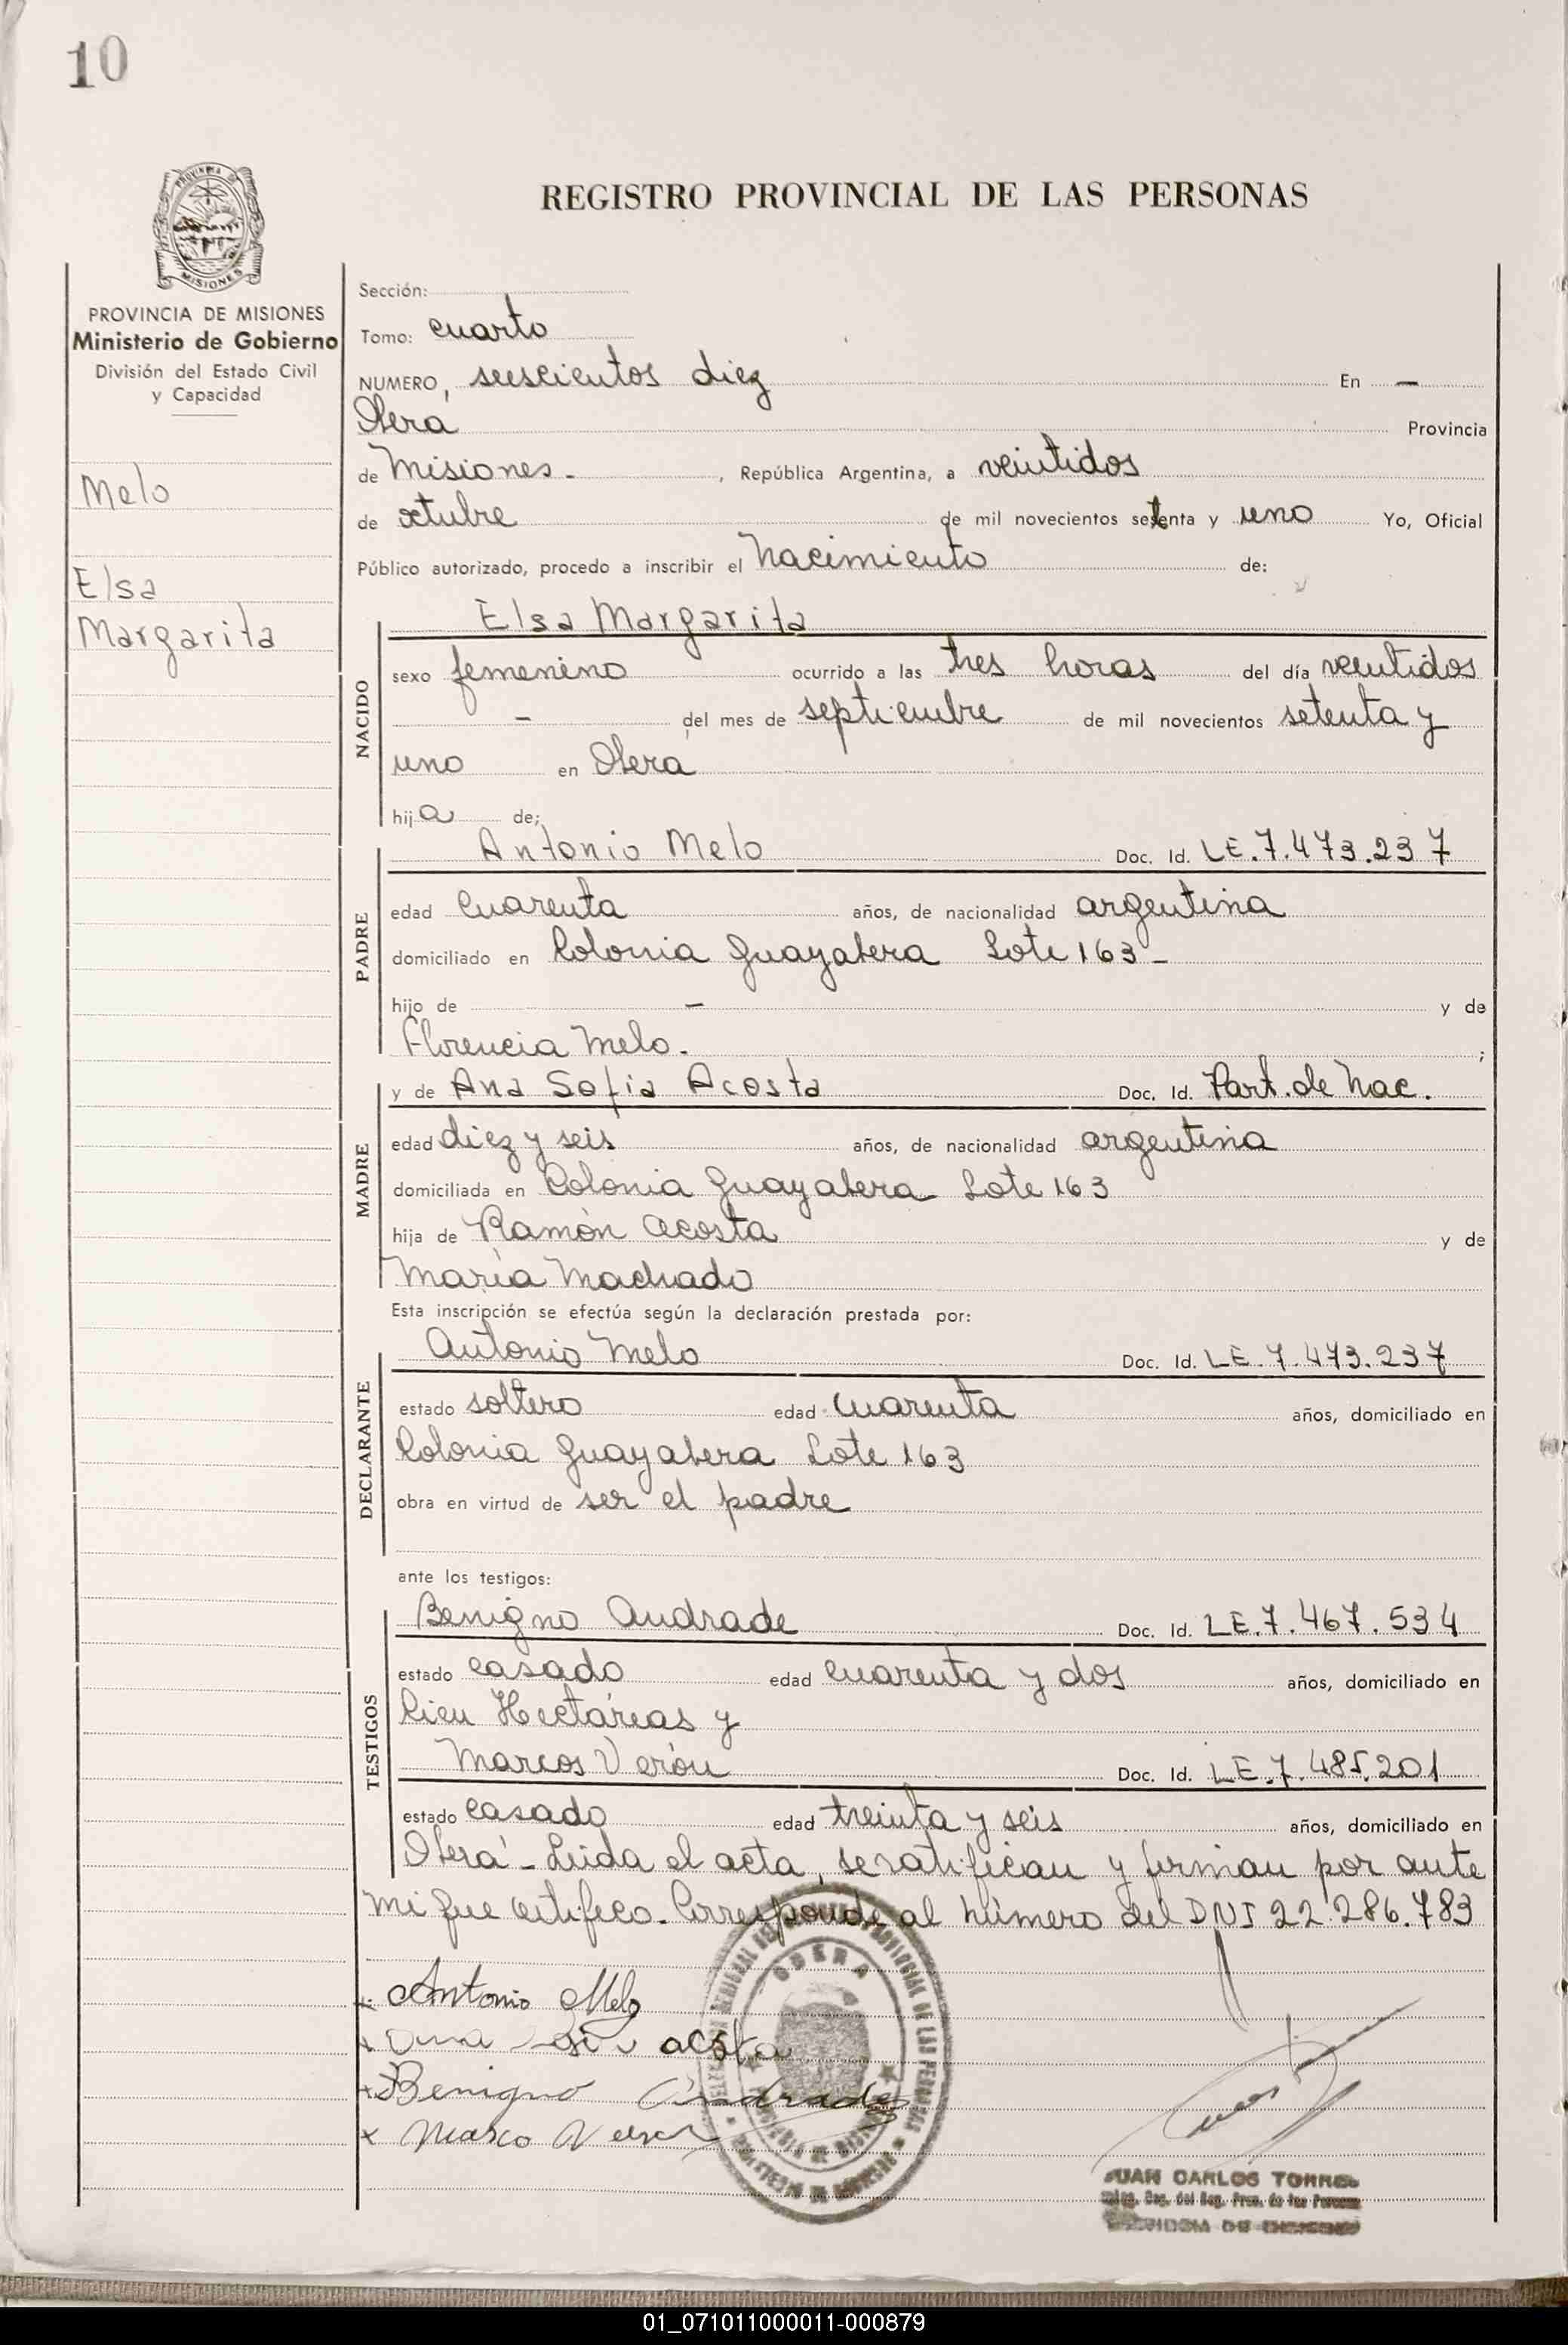 10
PROVINCIA DE MISIONES
REGISTRO PROVINCIAL DE LAS PERSONAS
PROVINCIA DE MISIONES
Ministerio de Gobierno
División del Estado Civil
y Capacidad
Melo
Elsa
Margarita
Sección:
Tomo: cuarto
NUMERO, seiscientos diez En —
Oberá Provincia
de Misiones - , República Argentina, a veintidos
de octubre de mil novecientos setenta y uno Yo, Oficial
Público autorizado, procedo a inscribir el Nacimiento de:
NACIDO
Elsa Margarita
sexo femenino ocurrido a las tres horas del día veintidos
- del mes de septiembre de mil novecientos setenta y
uno en Oberá
hija de;
PADRE
Antonio Melo Doc. Id. LE.7.473.237
edad cuarenta años, de nacionalidad argentina
domiciliado en Colonia Guayabera Lote 163 -
hijo de - y de
Florencia Melo. ;
MADRE
y de Ana Sofia Acosta Doc. Id. Part. de Nac.
edad diez y seis años, de nacionalidad argentina
domiciliada en Colonia Guayabera Lote 163
hija de Ramón Acosta y de
María Machado
Esta inscripción se efectúa según la declaración prestada por:
DECLARANTE
Antonio Melo Doc. Id. LE.7.473.237
estado soltero edad cuarenta años, domiciliado en
Colonia Guayabera Lote 163
obra en virtud de ser el padre
ante los testigos:
TESTIGOS
Benigno Andrade Doc. Id. LE.7.467.534
estado casado edad cuarenta y dos años, domiciliado en
Cien Hectáreas y
Marcos Verón Doc. Id. LE.7.485.201
estado casado edad treinta y seis años, domiciliado en
Oberá - Leida el acta, se ratifican y firman por ante
mi que certifico. Corresponde al número del DNI 22.286.783
x Antonio Melo
x Ana acosta
x Benigno Andrade
x Marco
OBERA
JUAN CARLOS TORRES
01_071011000011-000879